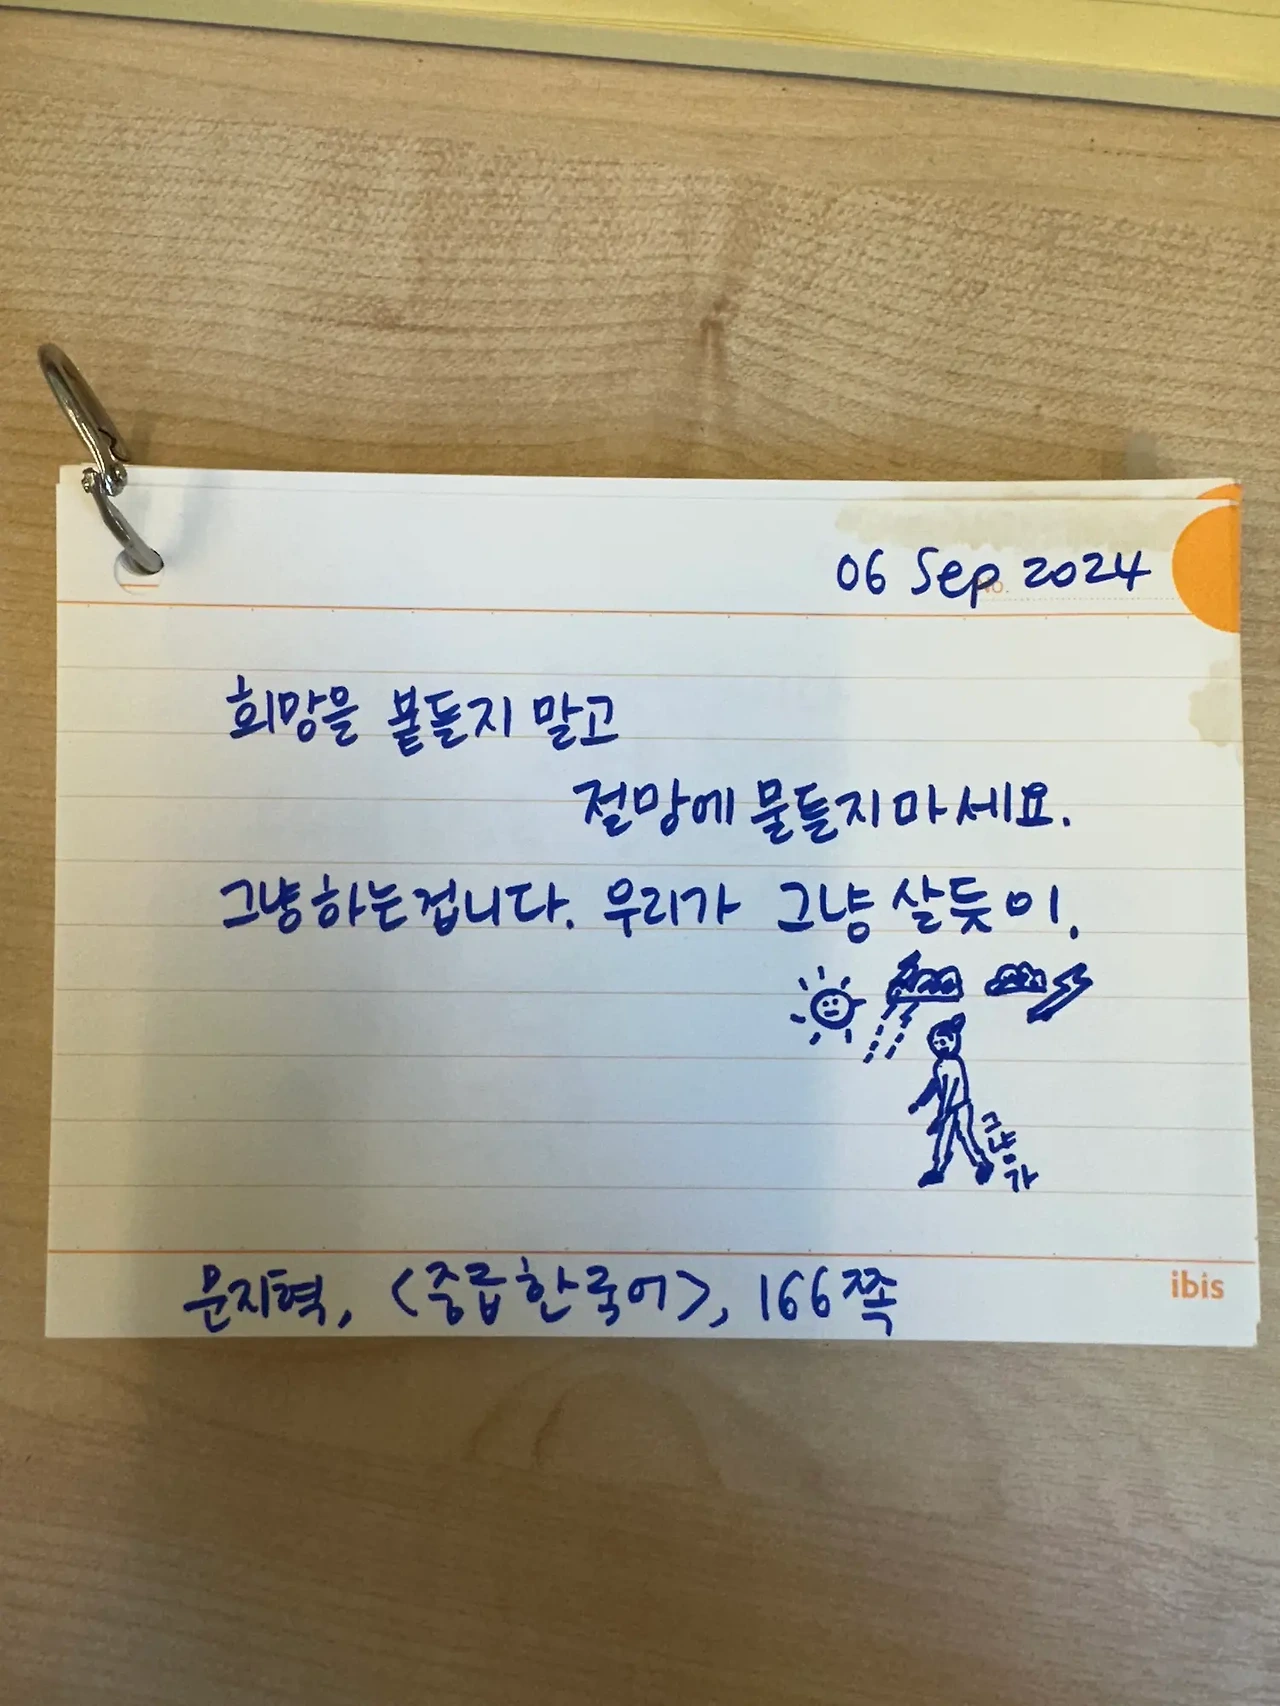 06 Sep 2024
No.
희망을 붙들지 말고
절망에 물들지 마세요.
그냥 하는 겁니다. 우리가 그냥 살듯이.
그냥
가
문지혁, <중급 한국어>, 166쪽
ibis